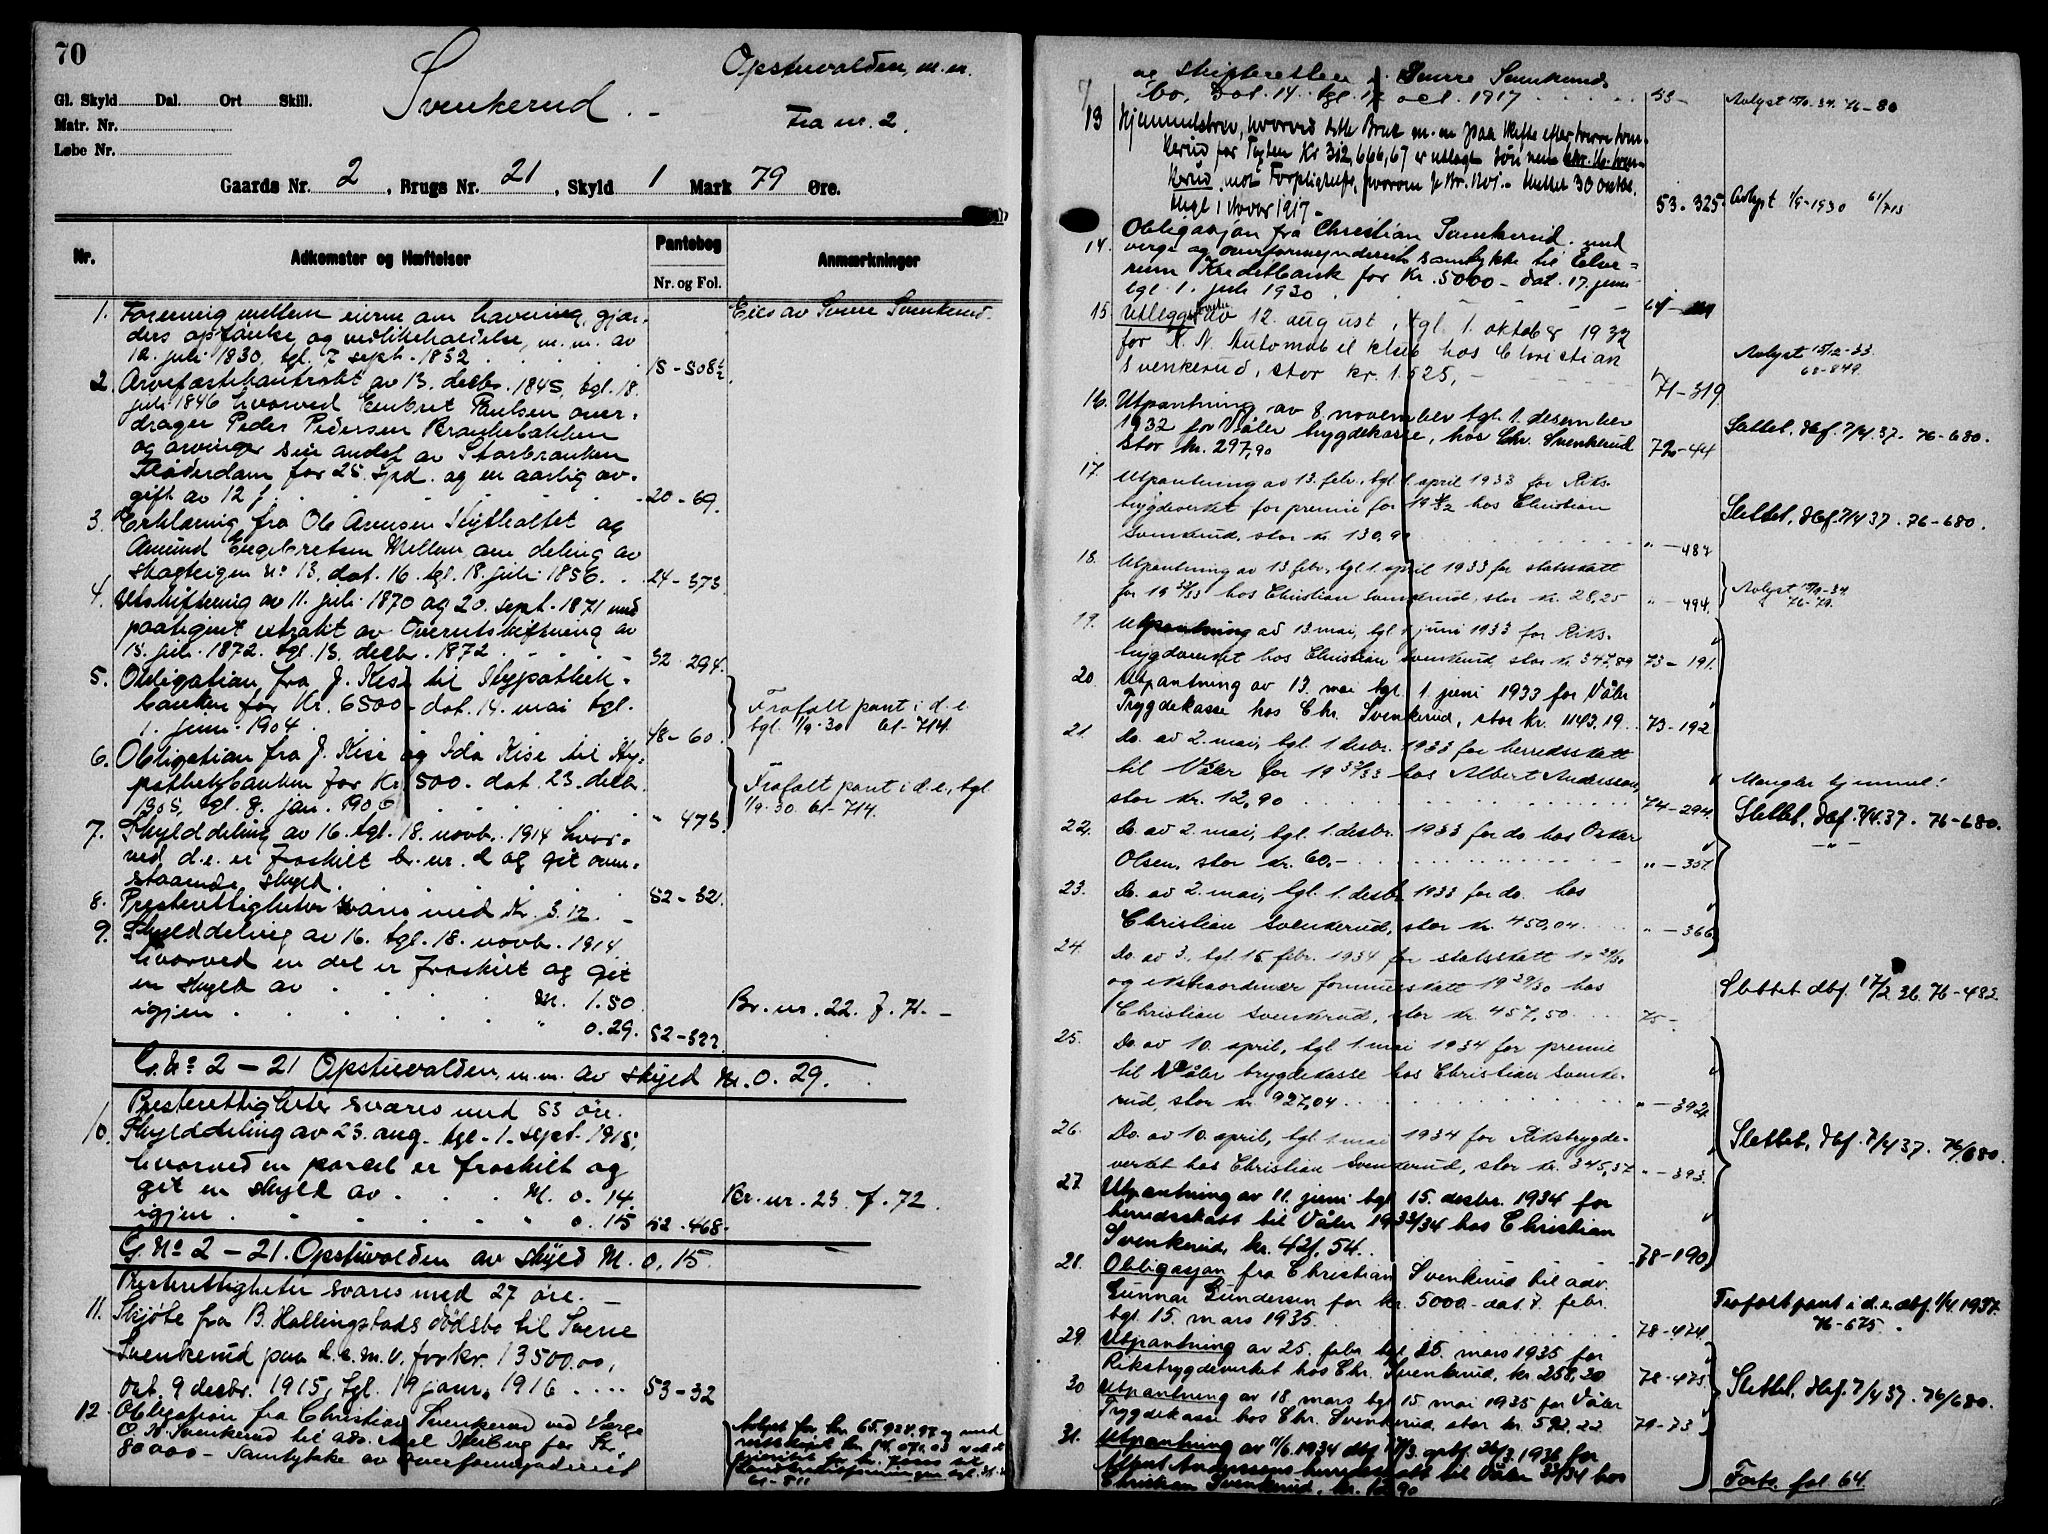 70
Svenkerud.
Opstuvolden, m.m.
Fra nr. 2.
Gl. Skyld Dal. Ort Skill.
Matr. Nr.
Løbe Nr.
Gaards Nr. 2, Brugs Nr. 21, Skyld 1 Mark 79 Øre.
Nr. Adkomster og Hæftelser Pantebog Anmærkninger
Nr. og Fol.
1. Forening mellem eierne om havning, gjær- Eies av Sverre Svenkerud.
ders optænke og vedlikeholdelse, m. m. av
12. juli 1830, tgl. 7 sept. 1832 15-508½
2. Arvefæstekontrakt av 13. decbr. 1845, tgl. 18.
juli 1846 hvorved Embret Paulsen over-
drager Peder Pedersen Brankebakken
og arvinger sin andel av Storbranken
Fløderdam for 25 spd. og en aarlig av-
gift av 12 f. 20-69.
3. Erklæring fra Ole Arnesen Skytholtet og
Amund Engebretsen Mellem om deling av
skogteigen No 13, dat. 16. tgl. 18. juli 1856. 24-373
4. Utskiftning av 11. juli 1870 og 20. sept. 1871 med
paategnet utrakt av Overutskiftning av
15. juli 1872. tgl. 13. decbr. 1872 32-294.
5. Obligation fra J. Kise til Hypothek-
banken for Kr. 6500 dat. 14. mai tgl. Frafalt pant i d.e.
1. juni 1904 48-60 tgl. 1/9-30 61-714.
6. Obligation fra J. Kise og Ida Kise til Hy-
pothekbanken for Kr. 500. dat. 23. decbr. Frafalt pant i d.e., tgl
1905, tgl. 8. jan. 1906 " 473 1/9-30. 61-714.
7. Skylddeling av 16. tgl. 18. novb. 1914 hvor-
ved d.e. er fraskilt br. nr. 2 og git oven-
staaende skyld. 52-321
8. Presterettigheter svares med Kr. 3.12.
9. Skylddeling av 16. tgl. 18. novb. 1914
hvorved en del er fraskilt og git
en skyld av M. 1.50 Br. nr. 22. f. 71.
igjen " 0.29. 52-322
G. No 2 - 21 Opstuvolden, m.m. av skyld M. 0.29.
Presterettigheter svares med 53 øre.
10. Skylddeling av 23. aug. tgl. 1. sept. 1915,
hvorved en parcel er fraskilt og
git en skyld av M. 0.14. Br. nr. 23. f. 72.
igjen " 0.15 52-468.
G. No 2 - 21. Opstuvolden av skyld M. 0.15.
Presterettigheter svares med 27 øre.
11. Skjøte fra B. Hallingstads dødsbo til Sverre
Svenkerud paa d.e.m.v. for kr. 13500.00,
dat. 9 desbr. 1915, tgl. 19 janr. 1916 53-32
12 Obligation fra Christian Svenkerud ved Verge
O. N. Svenkerud til adv. for Kr.
80000 - Samtykke av overformynderiet
og skifteretten i Sverre Svenkeruds
bo. Dat. 14. tgl. 17 oct. 1917 53- Avlyst 15/9.34. 76-80
13 Hjemmelsbrev, hvorved dette Bruk m. m. paa skifte efter Sverre Sven-
kerud for Taxten Kr 312,666,67 er utlagt Sønnen Chr. Sven-
kerud mot Forpligtelse, hvorom f. Br. No 1. - Utstedt 30 octbr.
tingl 1 Novbr 1917 - 53-325. Avlyst 1/9-1930 61/713
14. Obligasjon fra Christian Svenkerud med
verge og overformynderiets samtykke til Elve-
rum Kreditbank for Kr. 5000 - dat. 17. juni
tgl. 1. juli 1930
15 Utlegg av 12. august, tgl. 1. oktober 1932
for K. N. Automobil klub hos Christian Avlyst 15/12-33.
Svenkerud, stor kr. 1.525,- 71-319 68-849.
16. Utpantning av 8. november tgl. 1. desember
1932 for Våler trygdekasse, hos Chr. Svenkerud Slettet, dbf. 7/4.37. 76-680.
stor kr. 297,90 72-44
17. Utpantning av 13. febr. tgl 1. april 1933 for Riks-
trygdeverket for premie for 1931/32 hos Christian Slettet, dbf. 7/4 37. 76-680.
Svenkerud, stor kr. 130,90 " - 487
18. Utpantning av 13 febr. tgl 1. april 1933 for statsskatt
for 1932/33 hos Christian Svenkerud, stor kr. 28,25 " - 494 Avlyst 15/9-34. 76-79.
19. Utpantning av 13 mai, tgl 1. juni 1933 for Riks-
trygdeverket hos Christian Svenkerud, stor kr. 347,89 73-191.
20. Utpantning av 13. mai tgl. 1. juni 1933 for Våler
Trygdekasse hos Chr. Svenkerud, stor kr. 1143.19 73-192
21. Do. av 2. mai, tgl. 1. desbr. 1933 for herredsskatt
til Våler for 1932/33 hos Albert Andersson, Mangler hjemmel!
stor kr. 12,90 74-294 Slettet, dbf. 7/4.37. 76-680.
22. Do. av 2. mai, tgl. 1. desbr. 1933 for do hos Oskar - " -
Olsen, stor kr. 60.- " - 351
23. Do. av 2. mai, tgl. 1. desbr 1933 for do. hos
Christian Svenkerud, stor kr. 450,04 " - 366
24. Do. av 3. tgl. 15 febr. 1934 for statsskatt 1929/30
og ekstraordinær formuesskatt 1929/30 hos Slettet dbf. 17/2 36. 76-482
Christian Svenkerud, stor kr. 457,50 75-
25. Do. av 10. april, tgl 1. mai 1934 for premie
til Våler trygdekasse hos Christian Svenke-
rud, stor kr 927,04 " - 392
26. Do. av 10. april, tgl. 1. mai 1934 for Rikstrygde- Slettet, dbf. 7/4 37. 76/680.
verket hos Christian Svenkerud, stor kr. 345,37 " - 393.
27. Utpantning av 11. juni tgl 15. desbr. 1934 for
herredsskatt til Våler 1933/34 hos Christian
Svenkerud, kr. 421,54. 78-190
28. Obligasjon fra Christian Svenkerud til adv.
Gunnar Gundersen for kr. 5000.- dat. 7. febr. Frafalt pant i d.e. dbf. 1/4 1937.
tgl. 15. mars 1935. 78-474 76-675.
29. Utpantning av 25. febr. tgl 15. mars 1935 for
Rikstrygdeverket hos Chr. Svenkerud, kr. 258,20 78-475 Slettet, dbf. 7/4 37. 76/680.
30 Utpantning av 18 mars tgl 15 mai 1935 for Våler
Trygdekasse hos Chr. Svenkerud, stor kr. 592,22 79-73
31. Utpantning av 11/6 1934 1936 for
Albert Anderssens herredsskatt til Våler 33/34 hos
Christian Svenkerud, kr. 90 Forts. fol. 64.